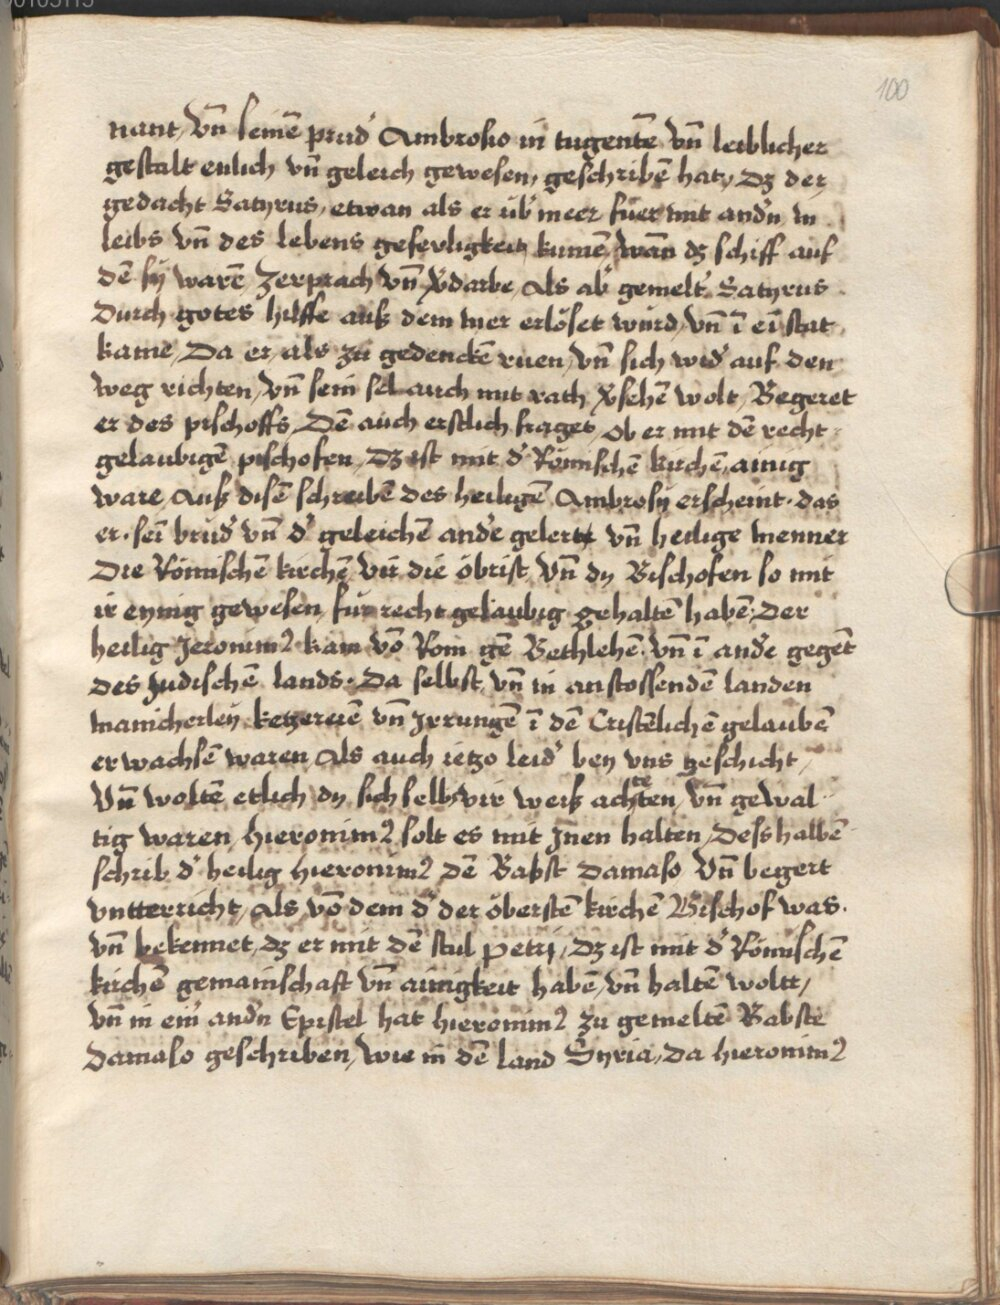 100
nant, vn̄ seinē prud' Ambrosio in tugentē vn̄ leiblicher
gestalt enlich vn̄ geleich gewesen, geschribē hat, Dz der
gedacht Satyrus, etwan als er üb' meer fuer mit and'n in
leibs vn̄ des lebens geferligkeit kumē, wan dz schiff auf
dē sy warē zerprach vn̄ v'darbe, Als ab' gemelt' Satyrus
Durch gotes hilffe auß dem mer erlöset wurd, vn̄ ī ei stat
kame, Da er, als zu gedenckē ruen, vn̄ sich wid' auf den
weg richten, vn̄ sein sel auch mit rath v'sehē wolt, Begeret
er des pischoffs, Dē auch erstlich fraget, ob er mit dē recht
gelaubigē pischofen, Dz ist mit d' Römischē kirchē, ainig
ware, Auß disē schreibē des heiligē Ambrosy erscheint. das
er. sei brud' vn̄ d' geleichē and'e gelertt vn̄ heilige menner
Die Römischē kirchē vir die öbrist vn̄ dy Bischofen so mit
ir eynig gewesen, für recht gelaubig gehaltē habē. Der
heilig Jeronimꝰ kam vō Rom gē Bethlehē vn̄ ī and'e gegēt
des Judischē lands. Da selbst, vn̄ in anstossendē landen
manicherley ketzereiē vn̄ Jrrungē ī dē Cristēlichē gelaubē
erwachsē waren, Als auch ietzo leid' bey vns geschicht,
Vn̄ woltē etlich dy sich selbs vir weiß achtē ten, vn̄ gewal
tig waren, hieronimꝰ solt es mit Jnen halten, Desshalbē
schrib d' heilig hieronimꝰ dē Babst Damaso vn̄ begert
vntterricht, Als vō dem d' der öberstē kirchē Bischof was.
vn̄ bekennet, dz er mit dē stul petri, Dz ist mit d' Römischē
kirchē gemainschaft vn̄ ainigkeit habē, vn̄ haltē woltt,
vn̄ in ein' and'n Epistel hat hieronimꝰ zu gemeltē Babste
Damaso geschriben, wie in dē land Syria, Da hieronimꝰ